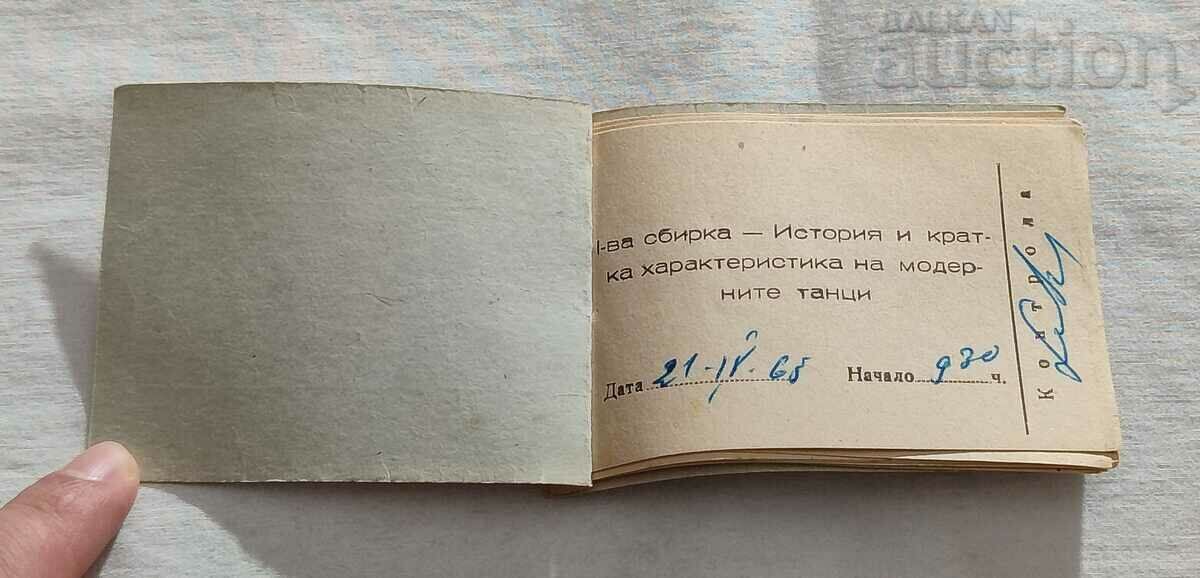 BALKAN
auction
I-ва сбирка — История и крат-
ка характеристика на модер-
ните танци
Дата 21-IV-65 Начало 930 ч.
Контрола